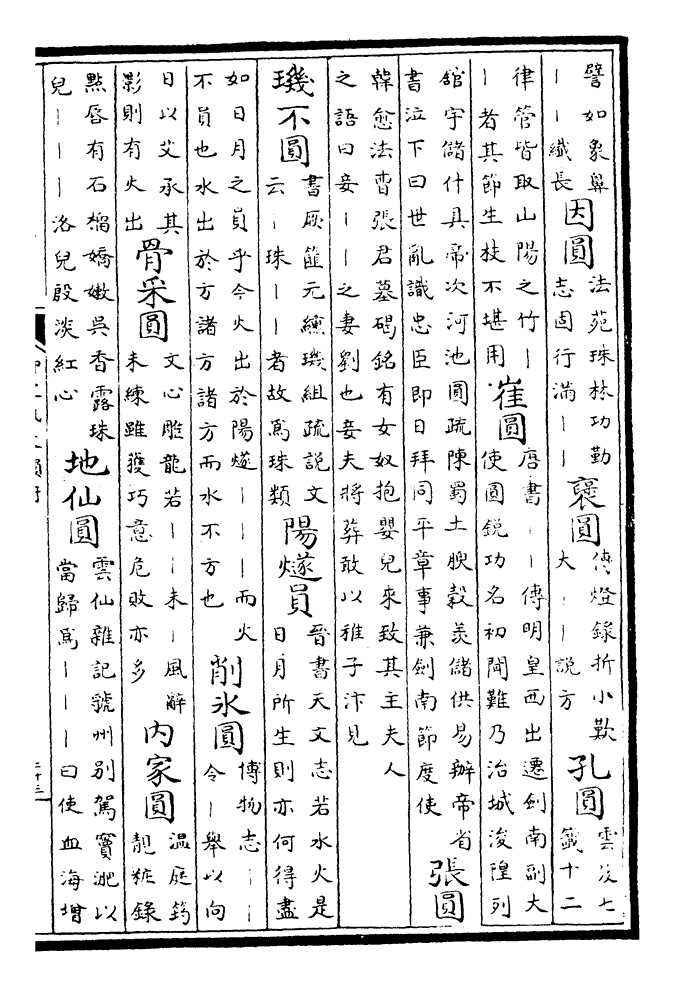 譬如象鼻
｜｜纖長
因圓
法苑珠林功勤
志固行滿｜｜
褎圓
傳燈錄折小歎
大｜｜説方
孔圓
雲笈七
籤十二
律管皆取山陽之竹｜
｜者其節生枝不堪用
崔圓
唐書｜｜傳明皇西出遷劍南副大
使圓銳功名初聞難乃治城浚隍列
舘宇儲什具帝次河池圓疏陳蜀土腴穀羨儲供易辦帝省
書泣下曰世亂識忠臣即日拜同平章事兼劍南節度使
張圓
韓愈法曹張君墓碣銘有女奴抱嬰兒來致其主夫人
之語曰妾｜｜之妻劉也妾夫將葬敢以稚子汴見
璣不圓
書厥篚元纁璣組疏説文
云｜珠｜｜者故爲珠類
陽燧員
晉書天文志若水火是
日月所生則亦何得盡
如日月之員乎今火出於陽燧｜｜｜而火
不員也水出於方諸方諸方而水不方也
削氷圓
博物志｜｜
令｜舉以向
日以艾承其
影則有火出
骨采圓
文心雕龍若｜｜未｜風辭
未練雖獲巧意危敗亦多
内家圓
温庭筠
靚粧錄
點唇有石榴嬌嫩吳香露珠
兒｜｜｜洛兒殷淡紅心
地仙圓
雲仙雜記虢州别駕竇沘以
當歸爲｜｜｜｜曰使血海增
二十三